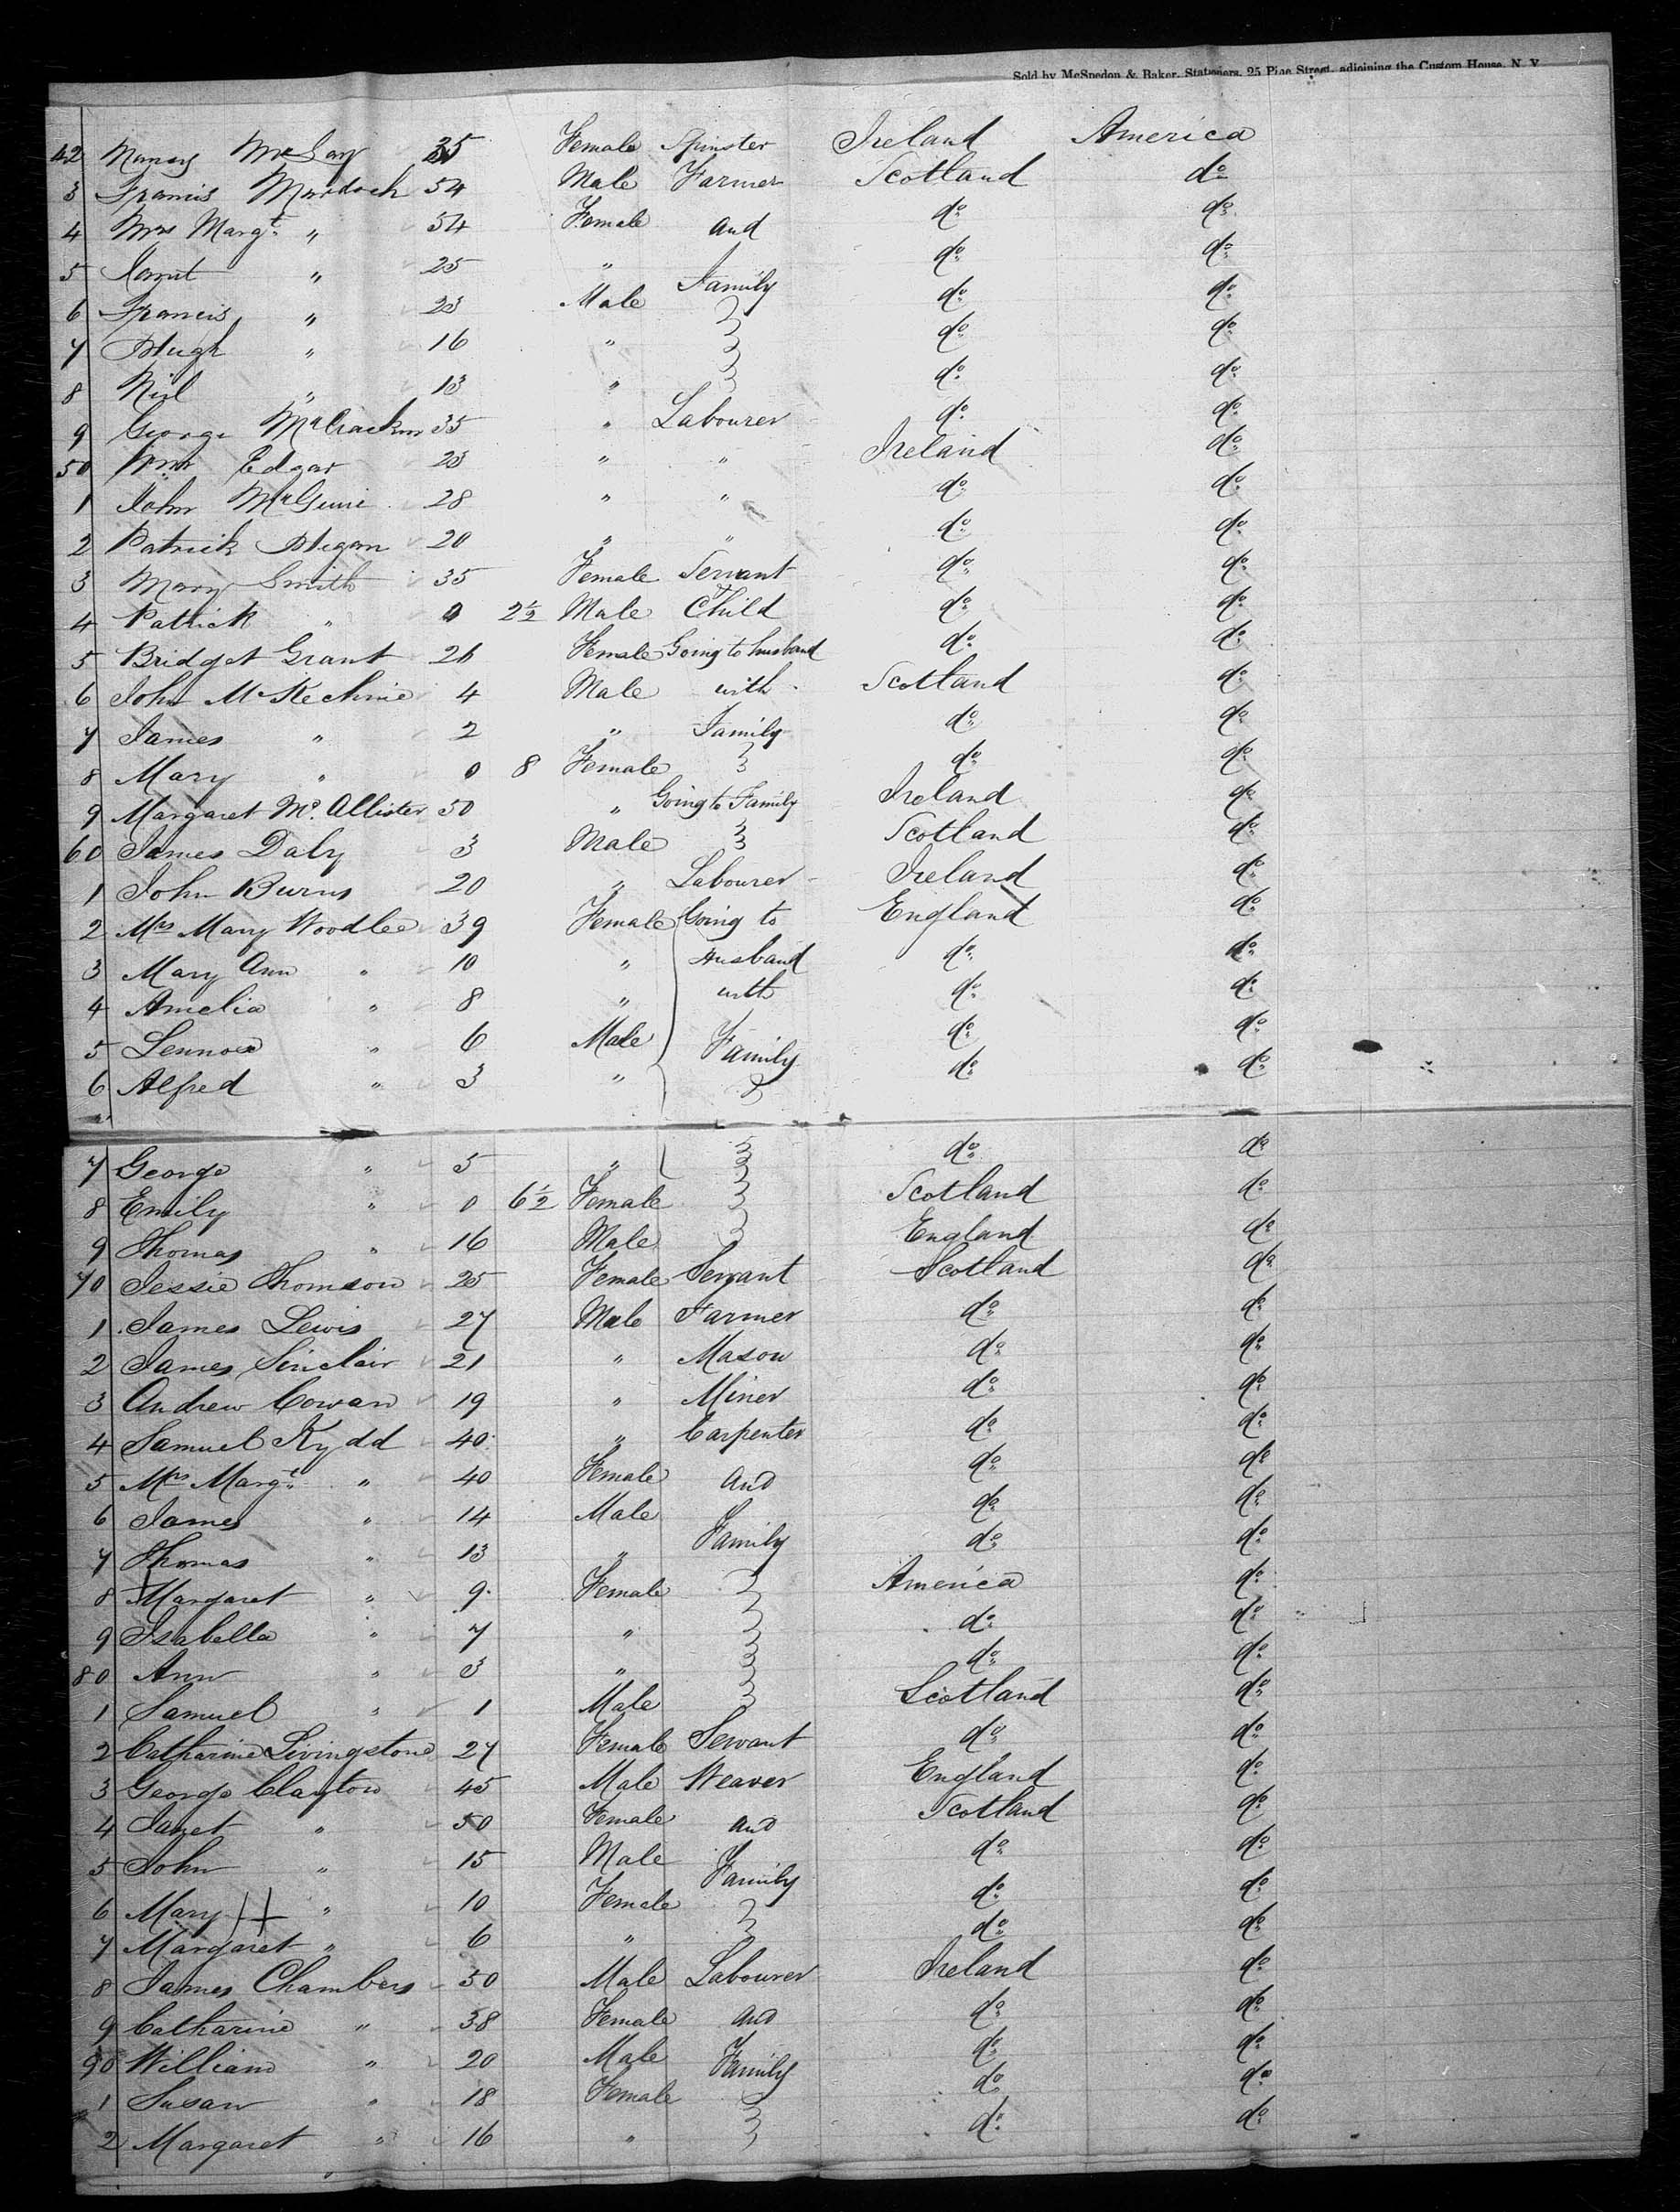 Sold by McSpedon & Baker, Stationers, 25 Pine Street, adjoining the Custom House, N. Y.
42 Nancy 35 Female Spinster Ireland America
3 Francis Murdoch 54 Male Farmer Scotland do
4 Mrs Margt. " 54 Female and do do
5 Janet " 25 " Family do do
6 Francis " 23 Male do do
7 Hugh " 16 " do do
8 Neil " 13 " do do
9 George McCracken 35 " Labourer do do
50 Wm Edgar 23 " " Ireland do
1 John 28 " " do do
2 Patrick Hegan 20 " " do do
3 Mary Smith 35 Female Servant do do
4 Patrick " 0 2½ Male Child do do
5 Bridget Grant 26 Female Going to husband do do
6 John McKechnie 4 Male with Scotland do
7 James " 2 " Family do do
8 Mary " 0 8 Female do do
9 Margaret Mc.Allister 50 " Going to Family Ireland do
60 James Daly 3 Male Scotland do
1 John Burns 20 " Labourer Ireland do
2 Mrs Mary Woodlee 39 Female Going to England do
3 Mary Ann " 10 " Husband do do
4 Amelia " 8 " with do do
5 Lennox " 6 Male Family do do
6 Alfred " 3 " do do
7 George " 5 " do do
8 Emily " 0 6½ Female Scotland do
9 Thomas " 16 Male England do
70 Jessie Thomson 25 Female Servant Scotland do
1 James Lewis 27 Male Farmer do do
2 James Sinclair 21 " Mason do do
3 Andrew Cowan 19 " Miner do do
4 Samuel Kydd 40 " Carpenter do do
5 Mrs Margt. " 40 Female and do do
6 James " 14 Male Family do do
7 Thomas " 13 " do do
8 Margaret " 9 Female America do
9 Isabella " 7 " do do
80 Ann " 3 " do do
1 Samuel " 1 Male Scotland do
2 Catharine Livingstone 27 Female Servant do do
3 George Clayton 45 Male Weaver England do
4 Janet " 50 Female and Scotland do
5 John " 15 Male Family do do
6 Mary " 10 Female do do
7 Margaret " 6 " do do
8 James Chambers 50 Male Labourer Ireland do
9 Catharine " 38 Female and do do
90 William " 20 Male Family do do
1 Susan " 18 Female do do
2 Margaret " 16 " do do